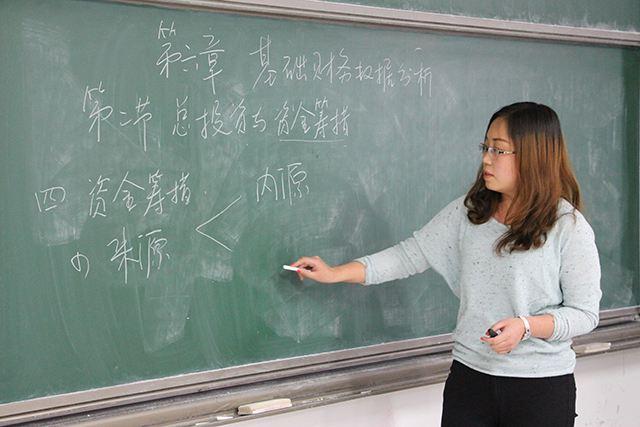 第六章 基础财务数据分析
第二节 总投资与资金筹措
四 资金筹措
内源
1) 来源